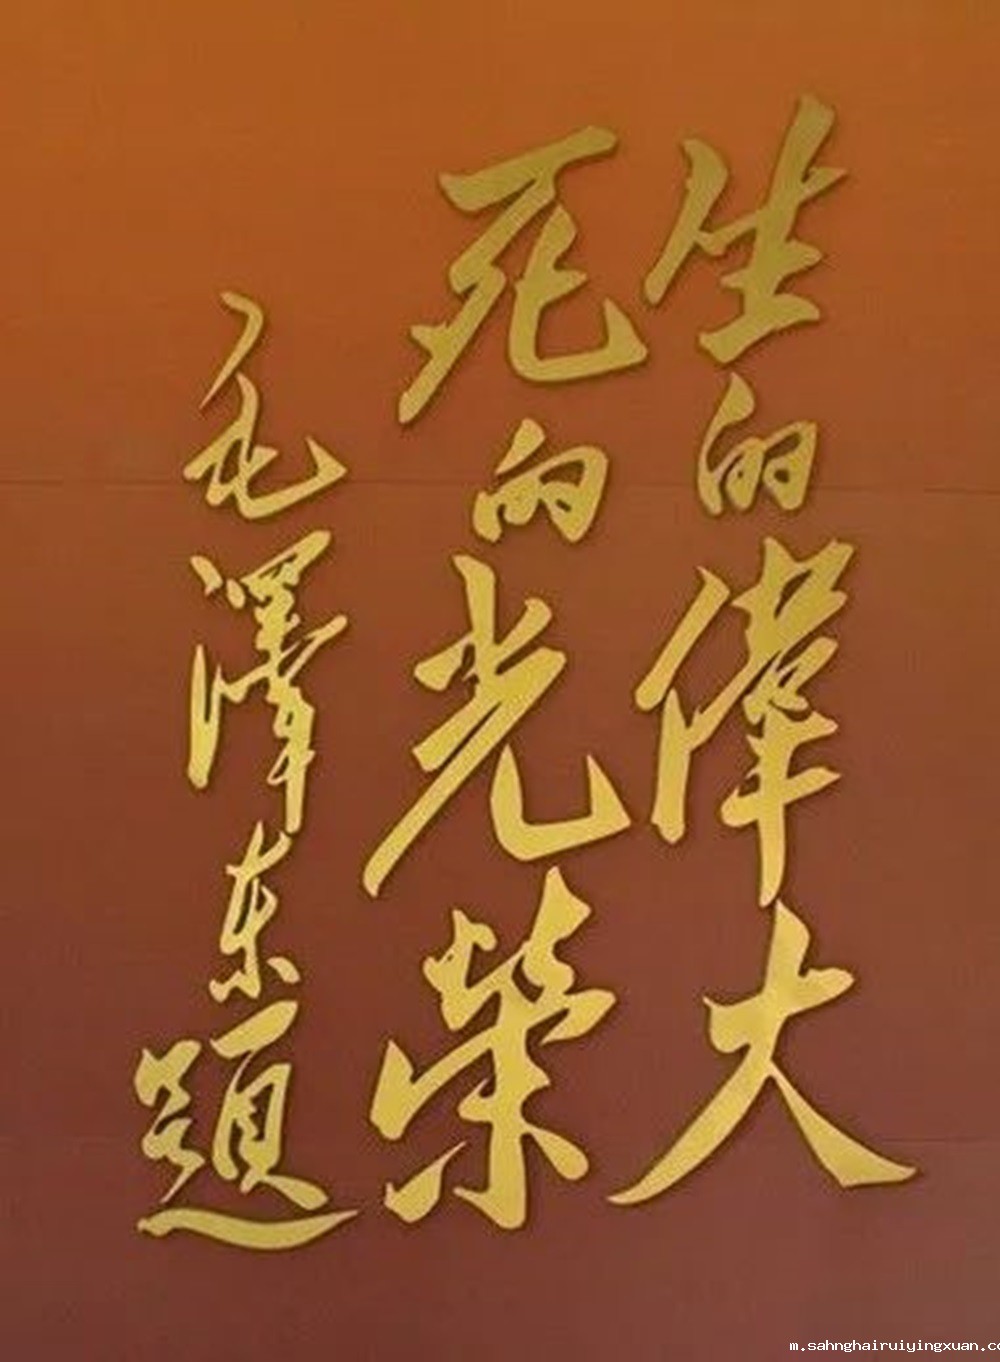 生的偉大
死的光榮
毛澤东題
m.sahnghairuiyingxuan.co